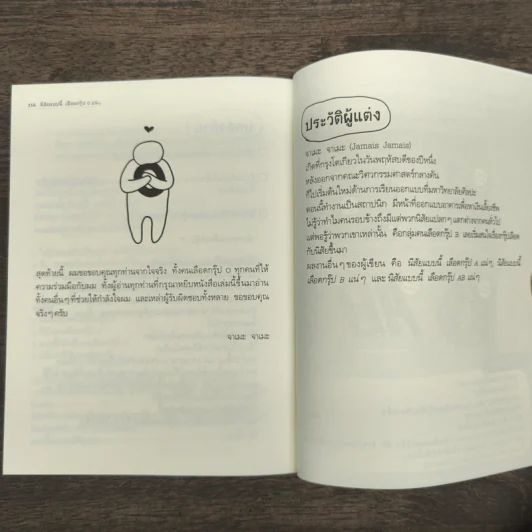 นิสัยแบบนี้ เลือดกรุ๊ป O แน่ๆ
สุดท้ายนี้ ผมขอขอบคุณทุกท่านจากใจจริง ทั้งคนเลือดกรุ๊ป O ทุกคนที่ให้
ความร่วมมือกับผม ทั้งผู้อ่านทุกท่านที่กรุณาหยิบหนังสือเล่มนี้ขึ้นมาอ่าน
ทั้งคนอื่นๆที่ช่วยให้กำลังใจผม และเหล่าผู้รับผิดชอบทั้งหลาย ขอขอบคุณ
จริงๆครับ
จาเมะ จาเมะ
ประวัติผู้แต่ง
จาเมะ จาเมะ (Jamais Jamais)
เกิดที่กรุงโตเกียวในวันพฤหัสบดีของปีหนึ่ง
หลังออกจากคณะวิศวกรรมศาสตร์กลางคัน
ก็ไปเริ่มต้นใหม่ด้านการเรียนออกแบบที่มหาวิทยาลัยศิลปะ
ตอนนี้ทำงานเป็นสถาปนิก มีหน้าที่ออกแบบอาคารเพื่อหาเงินเลี้ยงชีพ
ไม่รู้ว่าทำไมคนรอบข้างถึงมีแต่พวกนิสัยแปลกๆแตกต่างจากคนทั่วไป
แต่พอรู้ว่าพวกเขาเหล่านั้น คือกลุ่มคนเลือดกรุ๊ป B เลยเริ่มสนใจเรื่องกรุ๊ปเลือด
กับนิสัยขึ้นมา
ผลงานอื่นๆของผู้เขียน คือ นิสัยแบบนี้ เลือดกรุ๊ป A แน่ๆ นิสัยแบบนี้
เลือดกรุ๊ป B แน่ๆ และ นิสัยแบบนี้ เลือดกรุ๊ป AB แน่ๆ